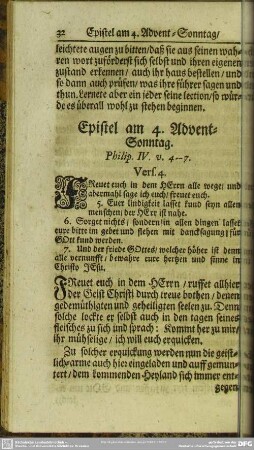 32 Epistel am 4. Advent-Sonntag/
leichtete augen zu bitten/ daß sie aus seinen wah-
ren wort zuförderst sich selbst und ihren eigenen
zustand erkennen/ auch ihr haus bestellen/ und
so dann auch prüfen/ was ihre führer sagen und
thun. Lernete aber ein jeder seine lection/ so wür-
de es überall wohl zu stehen beginnen.
Epistel am 4. Advent-
Sonntag.
Philip. IV. v. 4--7.
Vers. 4.
FReuet euch in dem HErrn alle wege; und
abermahl sage ich euch/ freuet euch.
5. Euer lindigkeit lasset kund seyn allen
menschen; der HErr ist nahe.
6. Sorget nichts; sondern in allen dingen lasset
eure bitte im gebet und flehen mit dancksagung für
GOtt kund werden.
7. Und der friede GOttes/ welcher höher ist denn
alle vernunfft/ bewahre eure hertzen und sinne in
Christo JEsu.
FReuet euch in dem HErrn/ ruffet allhier
der Geist Christi durch treue bothen/ denen
gedemüthigten und geheiligten seelen zu. Denn
solche lockte er selbst auch in den tagen seines
fleisches zu sich und sprach: Kommt her zu mir/
ihr mühselige/ ich will euch erquicken.
Zu solcher erquickung werden nun die geist-
lich-arme auch hier eingeladen und auff gemun-
tert/ dem kommenden Heyland sich immer ent-
gegen
DFG